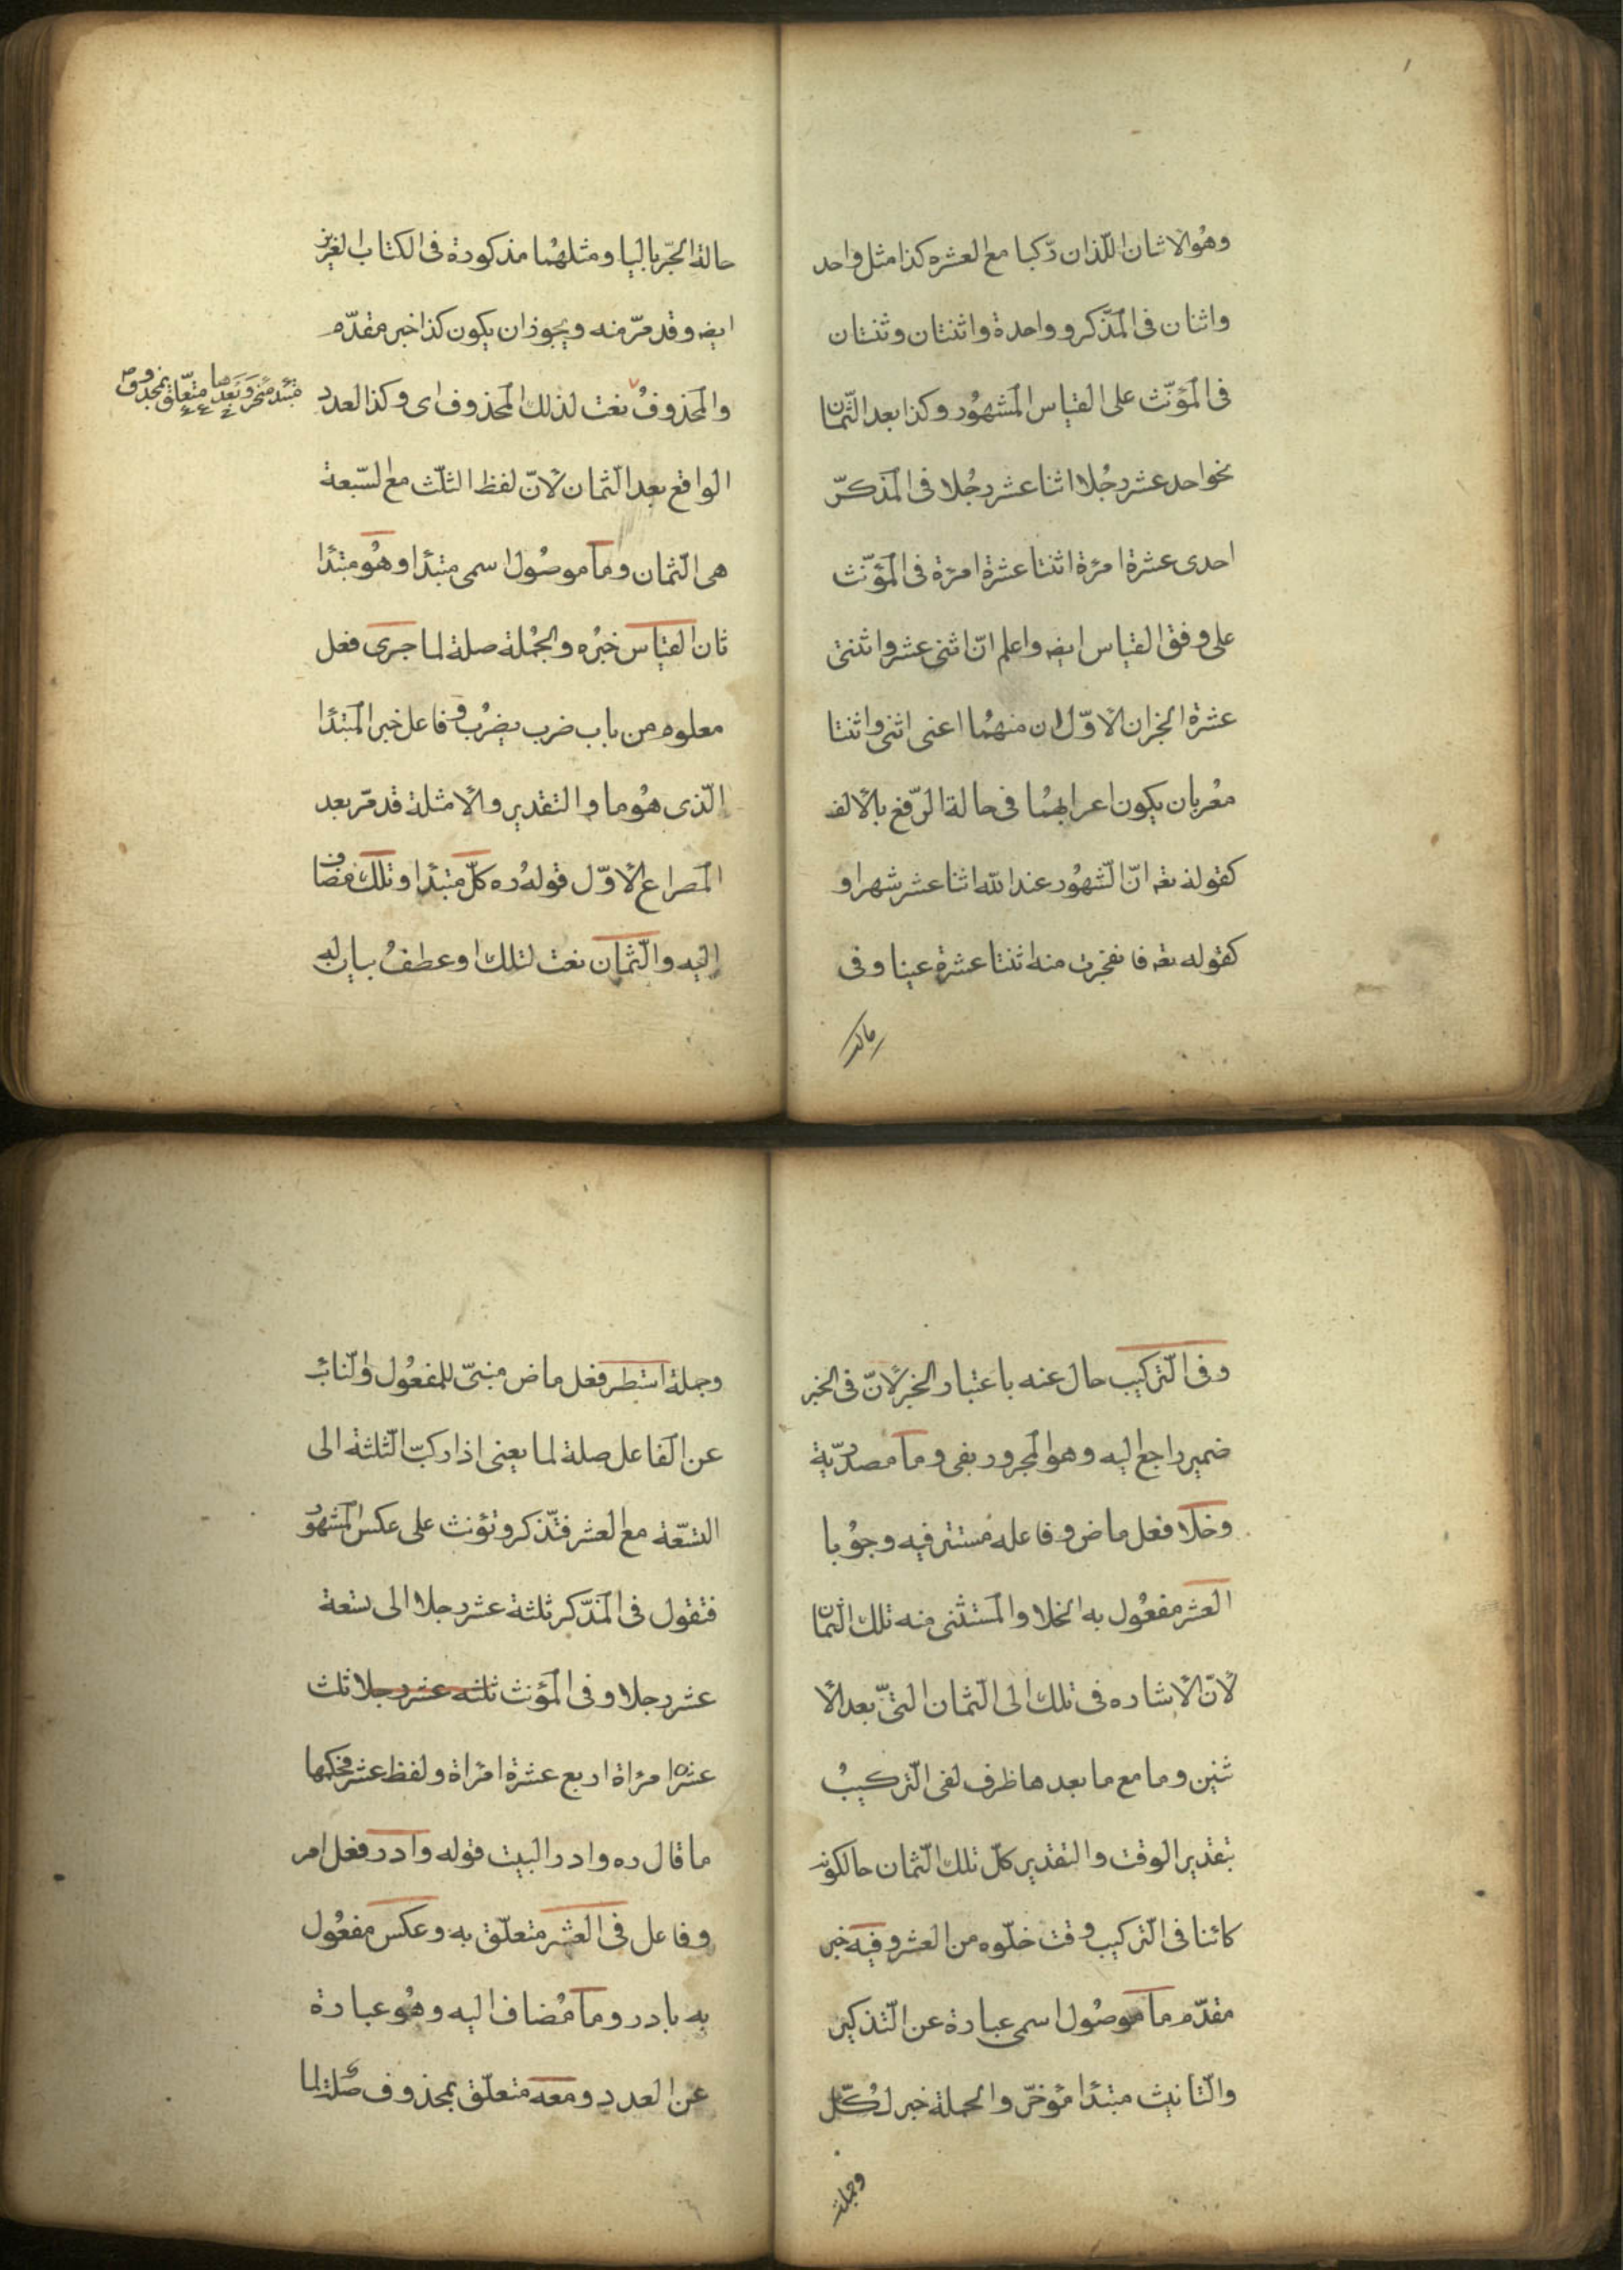 وهو الاثنان اللذان ركبا مع العشره كذا مثل واحد
واثنان فى المذكر وواحدة واثنتان وثنتان
فى المؤنّث على القياس المشهُور وكذا بعد الثّمان
نحو احد عشر رجُلا اثنا عشر رجُلا فى المذكّر
احدى عشرة امرئة اثنتا عشرة امرئة فى المؤنّث
على وفق القياس ايضه واعلم انّ اثنى عشر واثنتى
عشرة الجزان الاوّلان منهمُا اعنى اثنى واثنتا
مُعربان يكون اعرابهمُا فى حالة الرّفع بالالف
كقوله تعه انّ الشّهُور عند الله اثنا عشر شهرا و
كقوله تعه فانفجرت منه اثنتا عشرة عينا وفى
حالة
حالة الجّر باليا ومثلهُما مذكورة فى الكتاب العزيز
ايضه وقد مرّ منه ويجوز ان يكون كذا خبر مقدّم
والمحذوفُ نعت لذلك المحذوف اى وكذا العدد
مبتدء مؤخر وبعدها متعّلق بمحذوف
الواقع بعد الثمان لانّ لفظ الثلث مع السّبعة
هى الثمان وما موصُول اسمى مبتدا وهُو مبتدا
ثان القياس خبرُه والجُملة صلة لما جرى فعل
معلوم من باب ضرب يضرُب وفاعل خبر المبتدا
الّذى هُو ما والتقدير والامثلة قد مرّ بعد
المصراع الاوّل قولهُ ره كلّ مبتدا وتلك مضاف
اليه والثّمان نعت لتلك او عطفُ بيان له
وفى التّركيب حال عنه باعتبار الخبر لانّ فى الخبر
ضمير راجع اليه وهو المجرور بفى وما مصدرّية
وخلا فعل ماض وفاعله مُستتر فيه وجوُبا
العشر مفعُول به لخلا والمستثنى منه تلك الثّمان
لانّ الاشاره فى تلك الى الثمان التىّ بعد الا
ثنين وما مع ما بعدها ظرف لفى التّركيبُ
بتقدير الوقت والتقدير كلّ تلك الثّمان حالكونه
كائنا فى التّركيب وقت خلّوه من العشر وفيه خبر
مقدّم ما موصُول اسمى عبارة عن التّذكير
والتّانيث مبتدا مؤخرّ والجملة خبر لكُلّ
وجملة
وجملة استطر فعل ماض مبنىّ للمفعُول والنّائب
عن الفاعل صلة لما يعنى اذا ركبّ الثّلثة الى
التسّعة مع العشر فتّذكر وتؤنث على عكس المشهُور
فتقول فى المّذكر ثلثة عشر رجلا الى تسعة
عشر رجلا وفى المؤنث ثلثه عشر رجلا ثلث
عشره امرئاة اربع عشرة امرئاة ولفظ عشر فحكمها
ما قال ره وادر البيت قوله وادر فعل امر
وفاعل فى العشر متعلّق به وعكس مفعُول
به بادر وما مُضاف اليه وهُو عبارة
عن العدد ومعه متعلّق بمحذوف صُلة لما